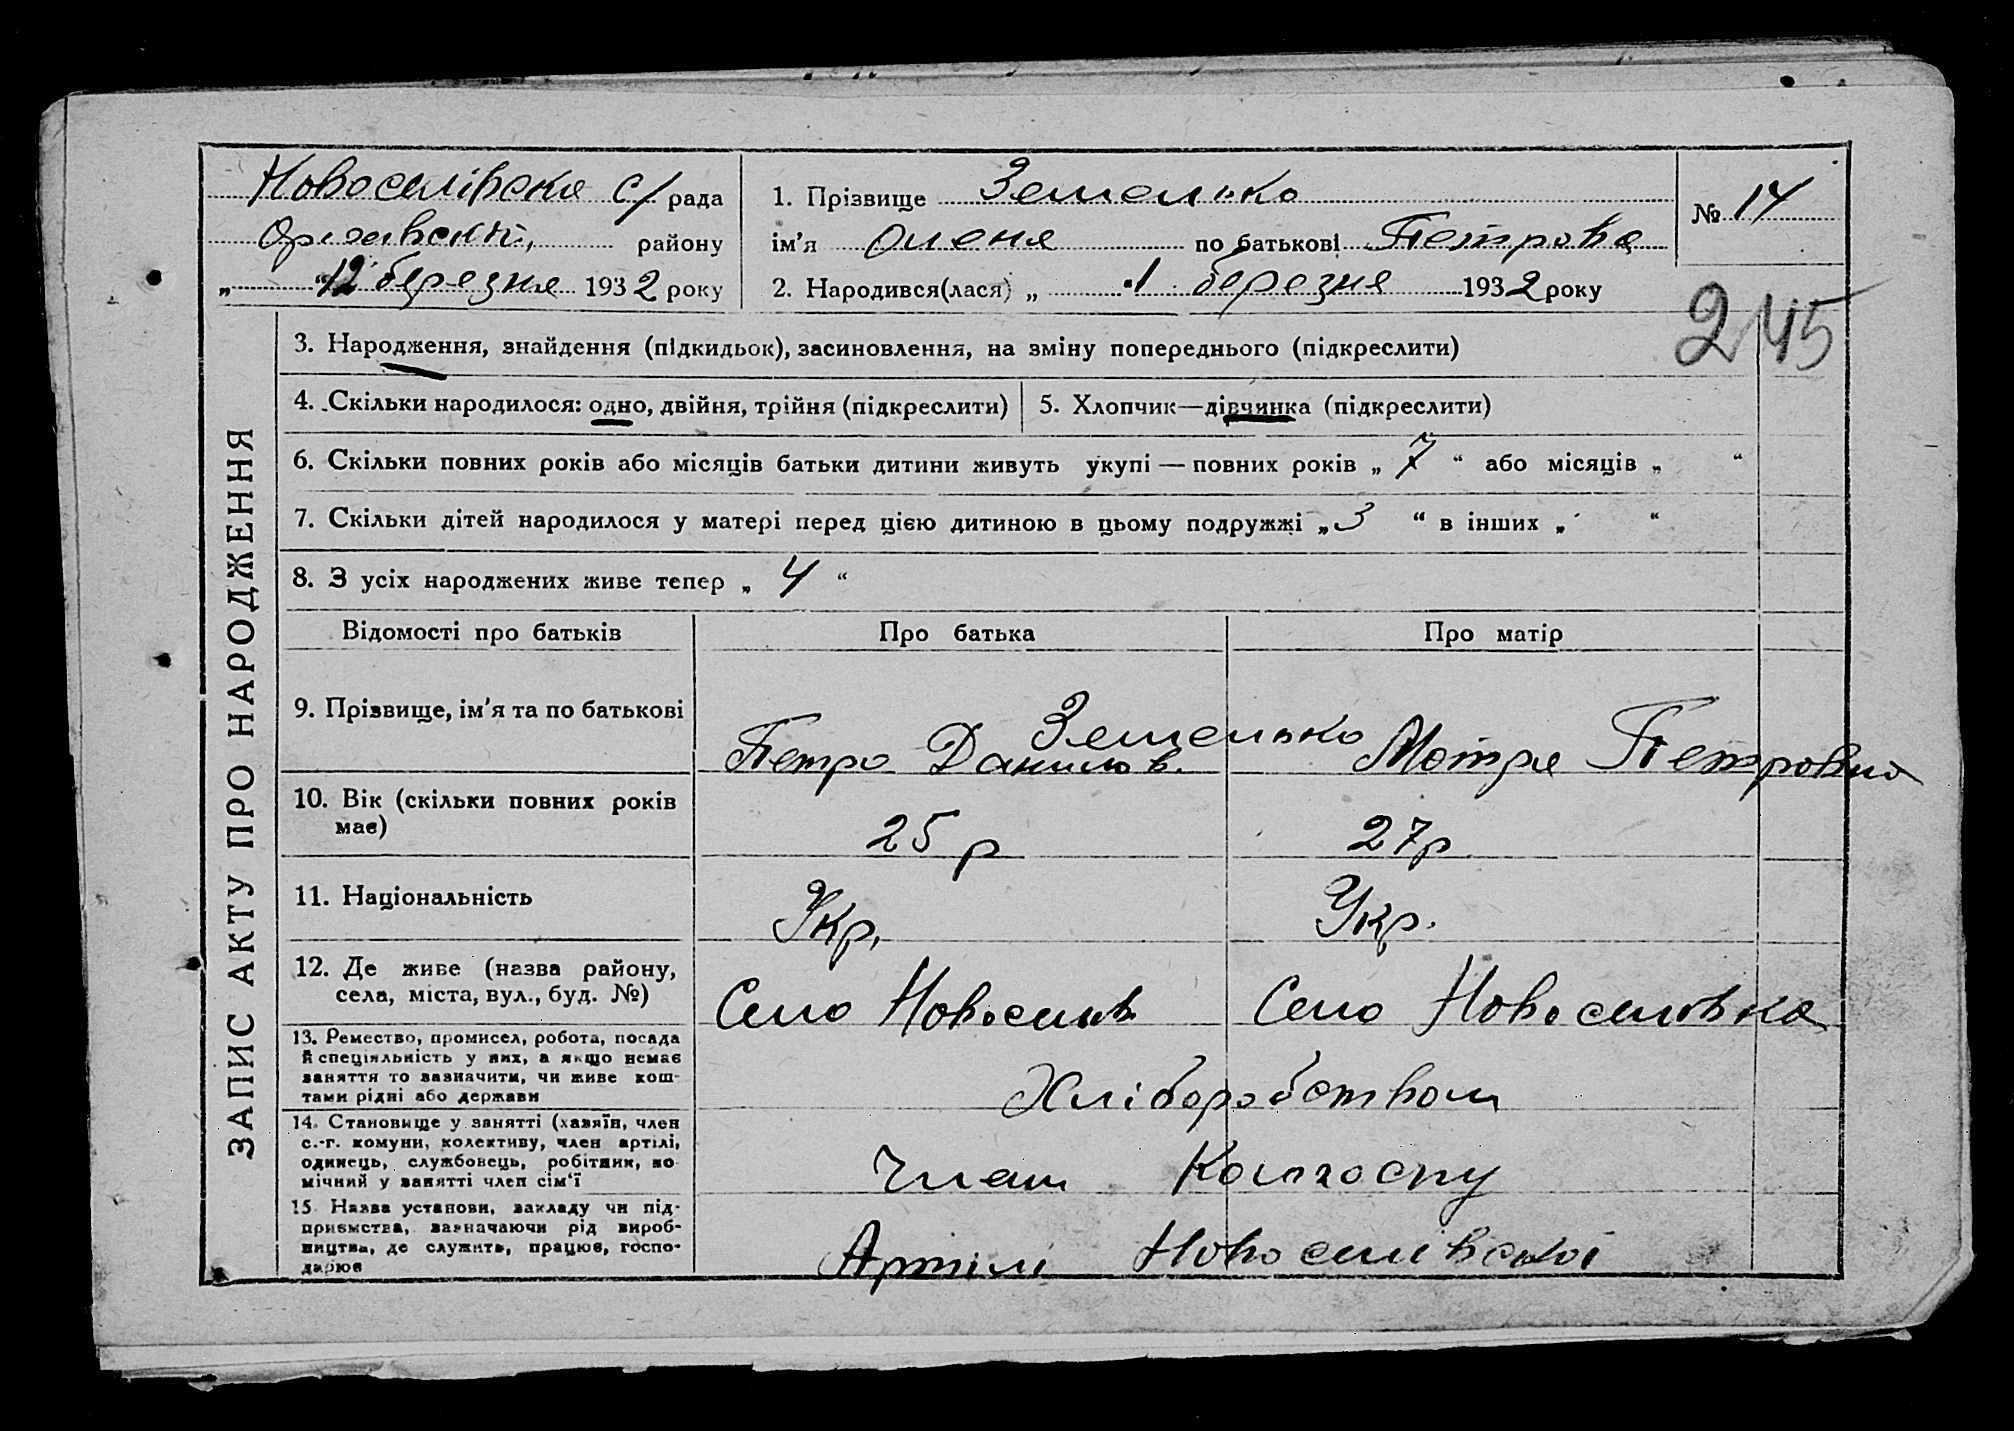 Новоселівська с/рада
Оржавський району
„ 12 " березня 1932 року
1. Прізвище Земелько
№ 14
ім'я Оленя по батькові Петрова
2. Народився(лася) „ 1 березня 1932 року
245
ЗАПИС АКТУ ПРО НАРОДЖЕННЯ
3. Народження, знайдення (підкидьок), засиновлення, на зміну попереднього (підкреслити)
4. Скільки народилося: одно, двійня, трійня (підкреслити) 5. Хлопчик—дівчинка (підкреслити)
6. Скільки повних років або місяців батьки дитини живуть укупі — повних років „ 7 “ або місяців „ “
7. Скільки дітей народилося у матері перед цією дитиною в цьому подружжі „ 3 “ в інших „ - “
8. З усіх народжених живе тепер „ 4 “
Відомості про батьків Про батька Про матір
9. Прізвище, ім'я та по батькові
Земелько
Петро Данилов. Мотря Петровна
10. Вік (скільки повних років
має)
25 р 27р
11. Національність Укр. Укр.
12. Де живе (назва району,
села, міста, вул., буд. №)
Село Новоселів Село Новоселовка
13. Ремество, промисел, робота, посада
й спеціяльність у них, а якщо немає
заняття то зазначити, чи живе кош-
тами рідні або держави
Хліборобством
14. Становище у занятті (хазяїн, член
с.-г. комуни, колективу, член артілі,
одинець, службовець, робітник, по-
мічний у занятті член сім'ї
Член Колгоспу
15 Назва установи, закладу чи під-
приємства, зазначаючи рід вироб-
ництва, де служить, працює, госпо-
дарює
Артілі Новоселівської